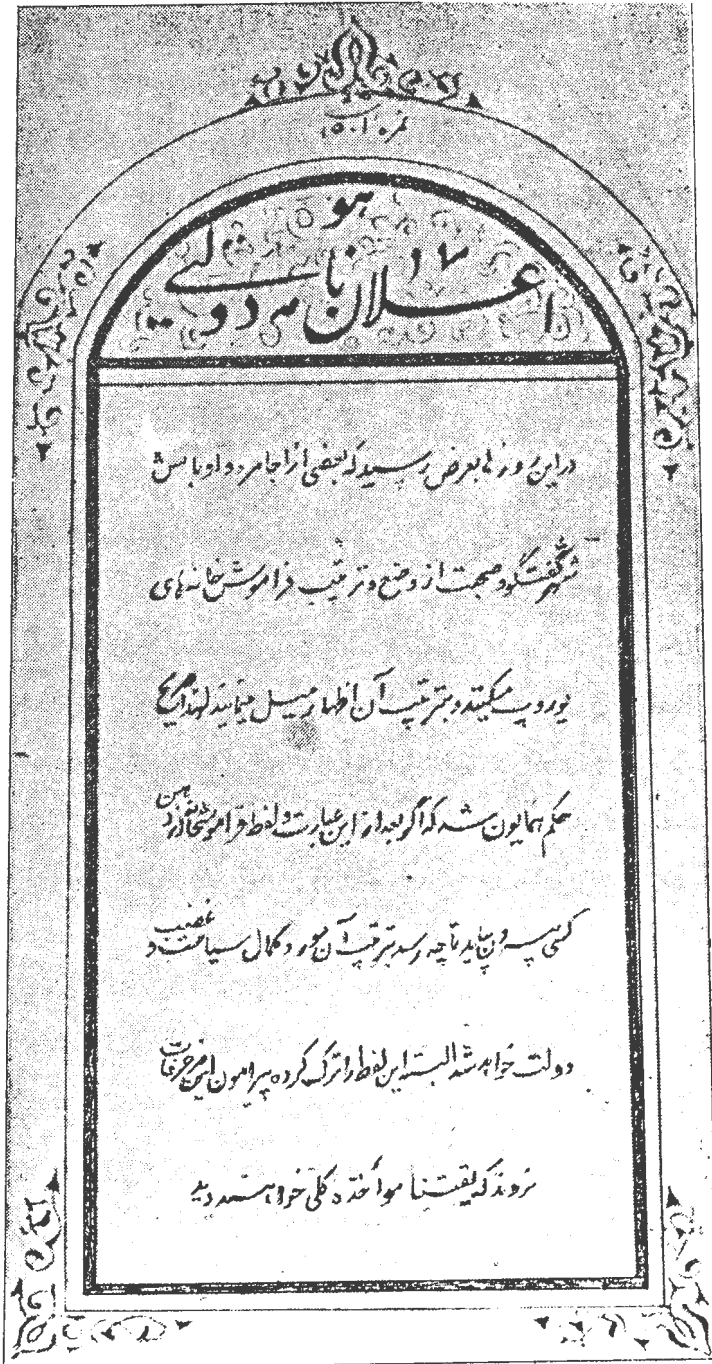 نمره ۵۰۱
هو
اعلان نامه دولتی
در این روزها بعرض رسید که بعضی از اجامر و اوباش
شهر گفتگو و صحبت از وضع و ترتیب فراموش خانه های
یوروپ میکنند و بترتیب آن اظهار میل مینمایند لهذا صریح
حکم همایون شد که اگر بعد از این عبارت و لفظ فراموشخانه از دهن
کسی بیرون بیاید تا چه رسد بترتیب آن مورد کمال سیاست و غضب
دولت خواهد شد البته این لفظ را ترک کرده پیرامون این مزخرفات
نروند که یقینا مواخذه کلی خواهند دید